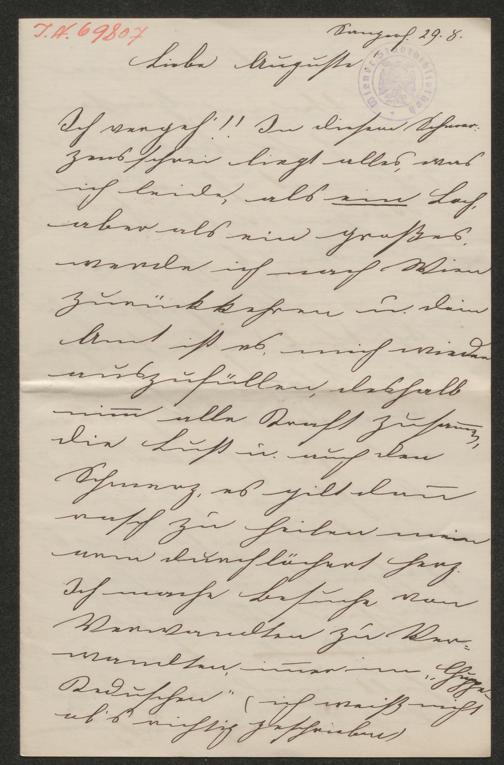 I.N. 69807
29.8.
Liebe Auguste
Ich vergeh'!! In diesem Schmer-
zensschrei liegt alles, was
ich leide, als ein Loch,
aber als ein großes,
werde ich nach Wien
zurückkehren u. dein
Amt ist es, mich wieder
auszufüllen, deshalb
nim̅ alle Kraft zusam̅en,
die Lust u. auch den
Schmerz, es gilt dan̅
rasch zu heilen mein
arm durchlöchert Herz.
Ich mache Besuche von
Verwandten zu Ver-
wandten, im̅er im
Reduschen" (ich weiß nicht
ob's richtig geschrieben)